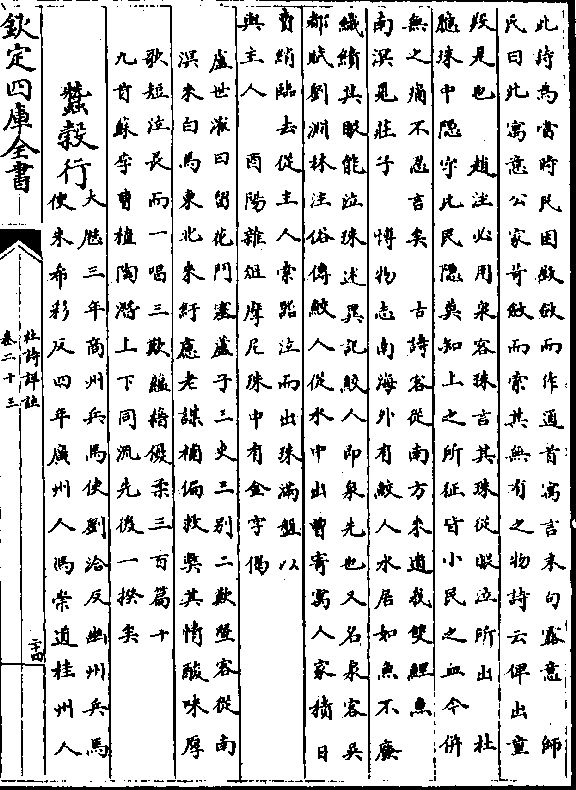 此詩為當時民困賦斂而作通首寓言末句露意　師
氏曰此寓意公家苛斂而索其無有之物詩云俾出童
羖是也　趙注必用泉客珠言其珠從眼泣所出　杜
臆珠中隱字比民隱莫知上之所征皆小民之血今併
無之痛不忍言矣　古詩客從南方來遺我雙鯉魚
南溟見莊子　博物志南海外有鮫人水居如魚不廢
織績其眼能泣珠述異記鮫人即泉先也又名泉客吳
都賦劉淵林注俗傳鮫人從水中出曾寄寓人家積日
賣綃臨去從主人索器泣而出珠滿盤以
與主人　酉陽雜俎摩尼珠中有金字偈
盧世㴶曰留花門塞蘆子三吏三別二歎暨客從南
溟來白馬東北來紆應老謀補偏救獘其情酸味厚
歌短泣長而一唱三歎蘊藉優柔三百篇十
九首蘇李曹植陶潛上下同流先後一揆矣
蠶穀行
大厯三年商州兵馬使劉洽反幽州兵馬
使朱希彩反四年廣州人馮崇道桂州人
欽定四庫全書
杜詩詳註
卷二十三
二十四